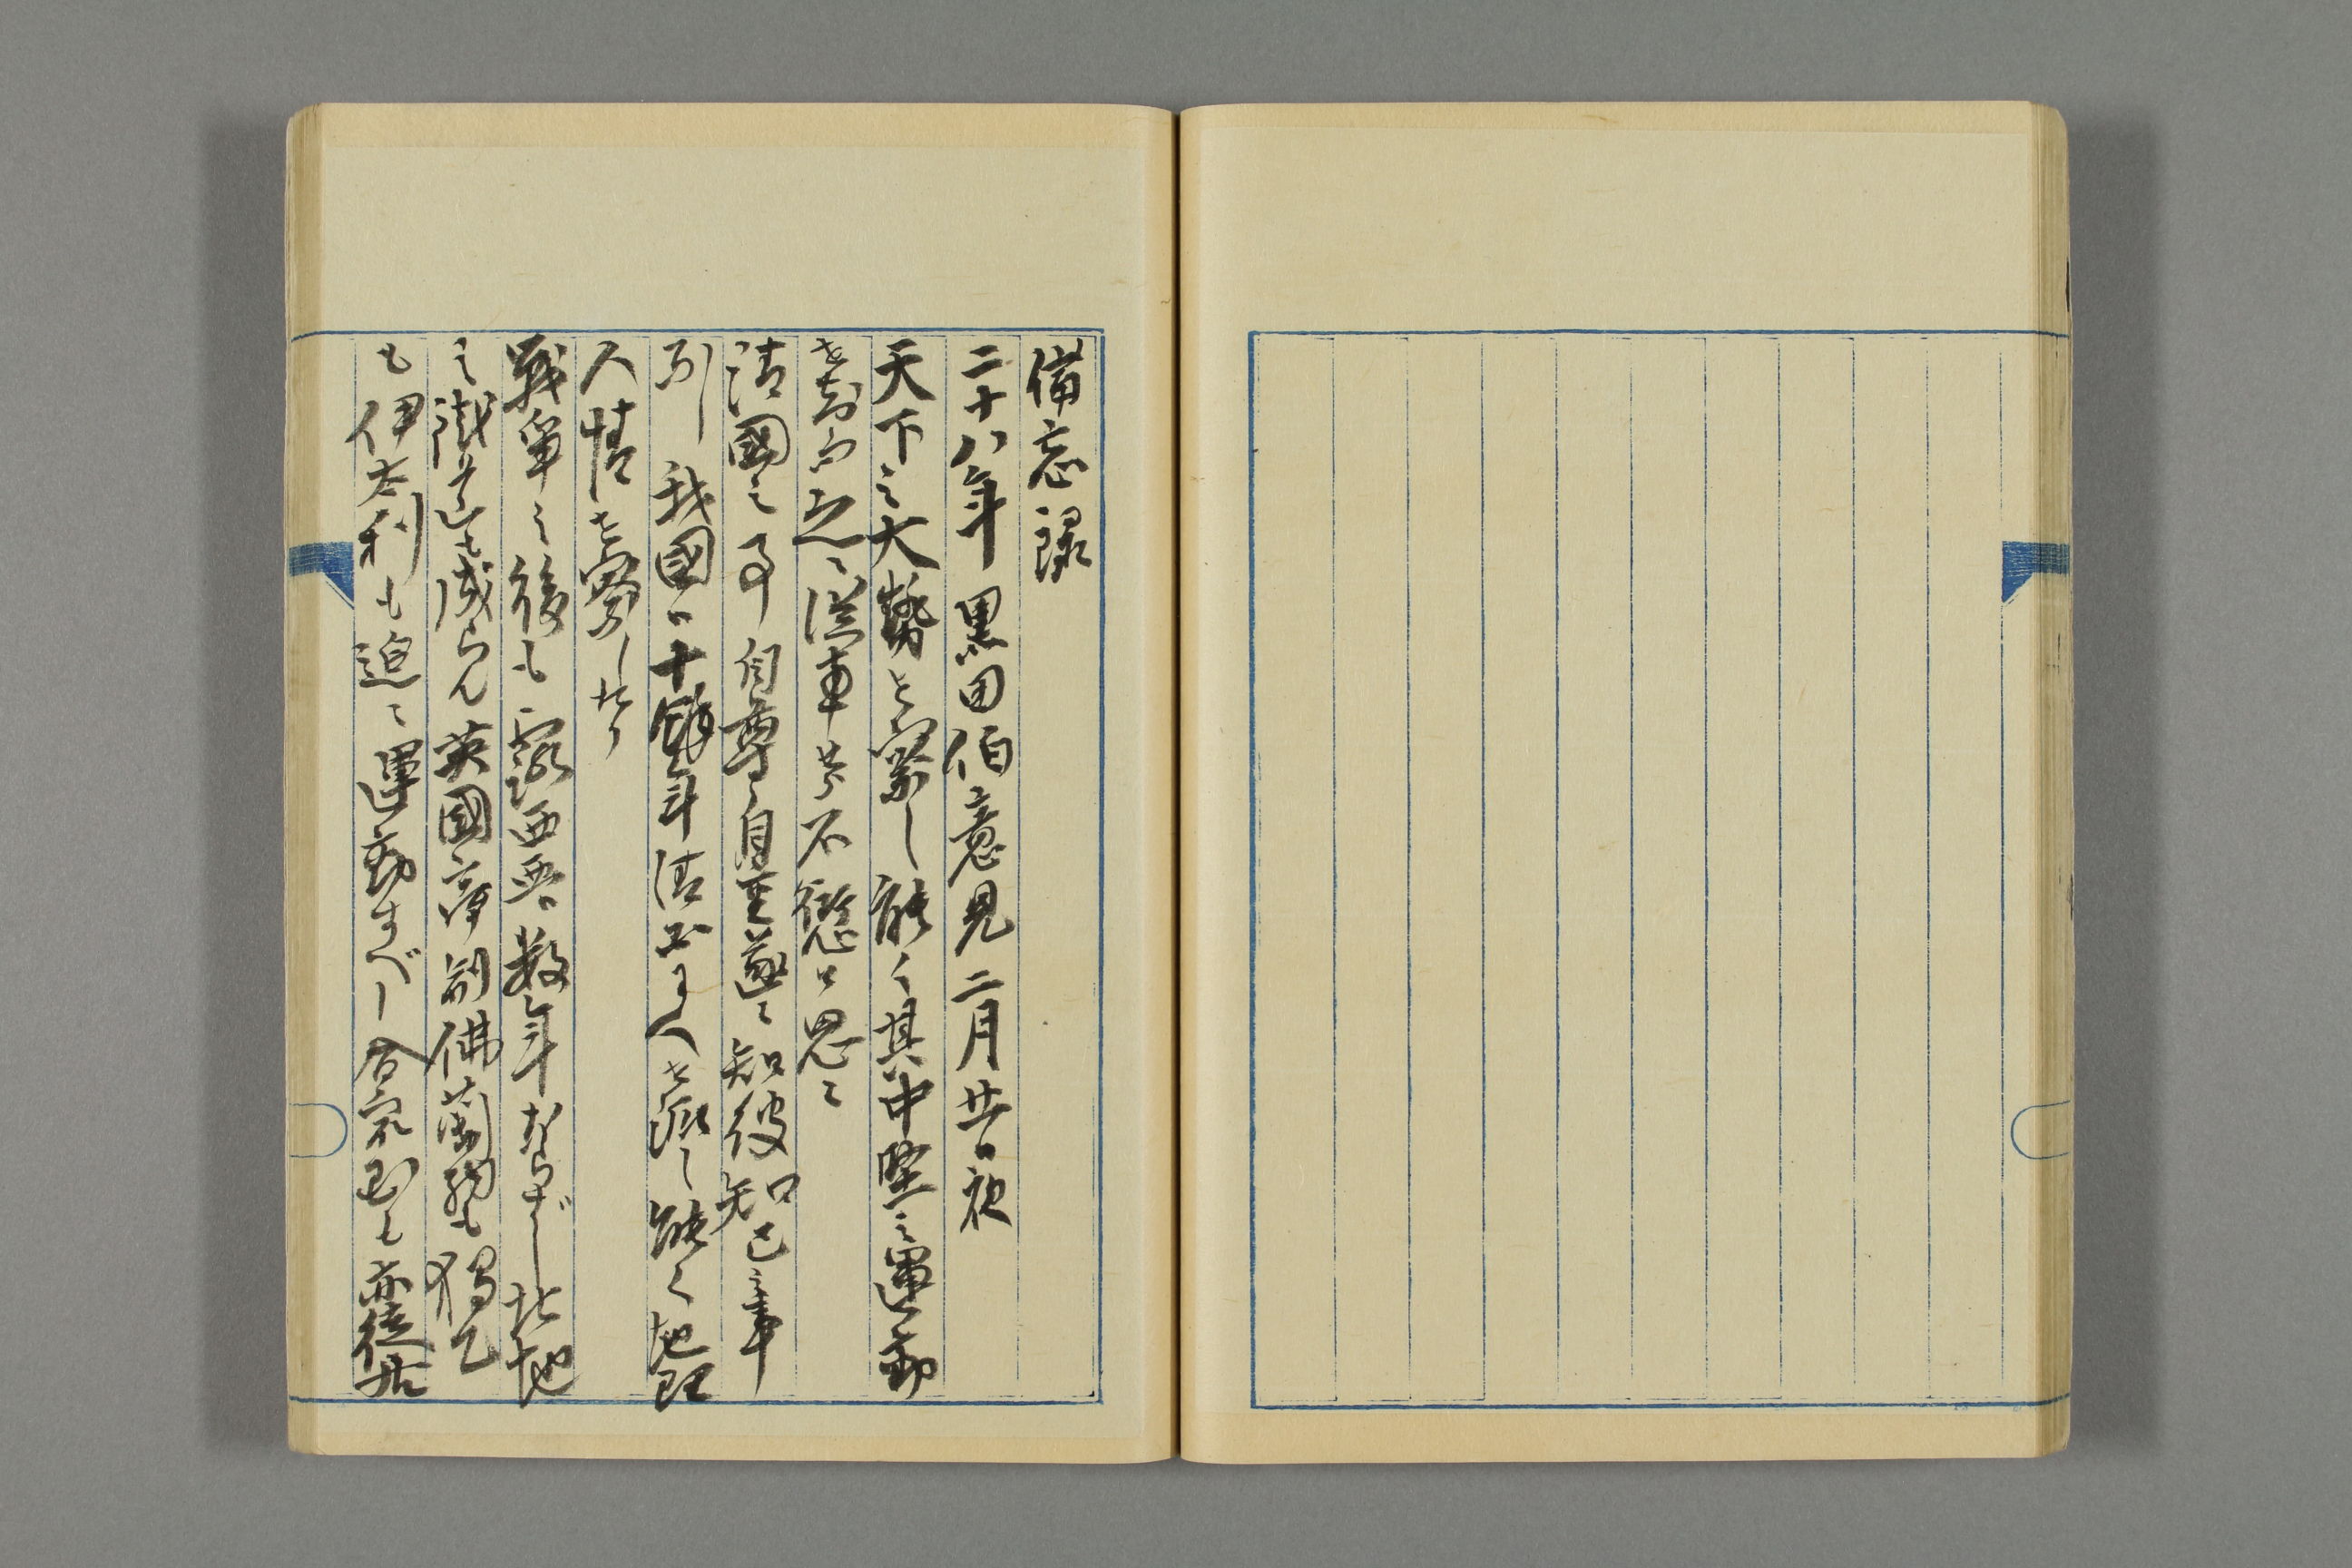 備忘録
二十八年 黒田伯意見 二月廿一日夜
天下之大勢を察し能く其中堅之運動
を為之ニ従事せ不懲ハ思ニ
清國之事 自尊自重遂ニ知彼知己之事
引 我國ハ十餘年清國ヘ人を派し能く地理
人情を察したり
戦争之後も露西亜ハ数年ならずし 此地
之 鐵道も成らん英國 佛蘭西も獨乙
も伊太利も迫々運動すべし合衆国も亦徒